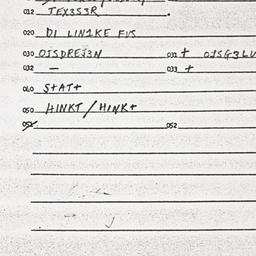 012 TEX3S3R.
020 DI LIN1KE FUS
030 OJSDREJ3N 031 + OJSG3LU
032 — 033 +
040 S+AT+
050 HINKT/HINK+
052